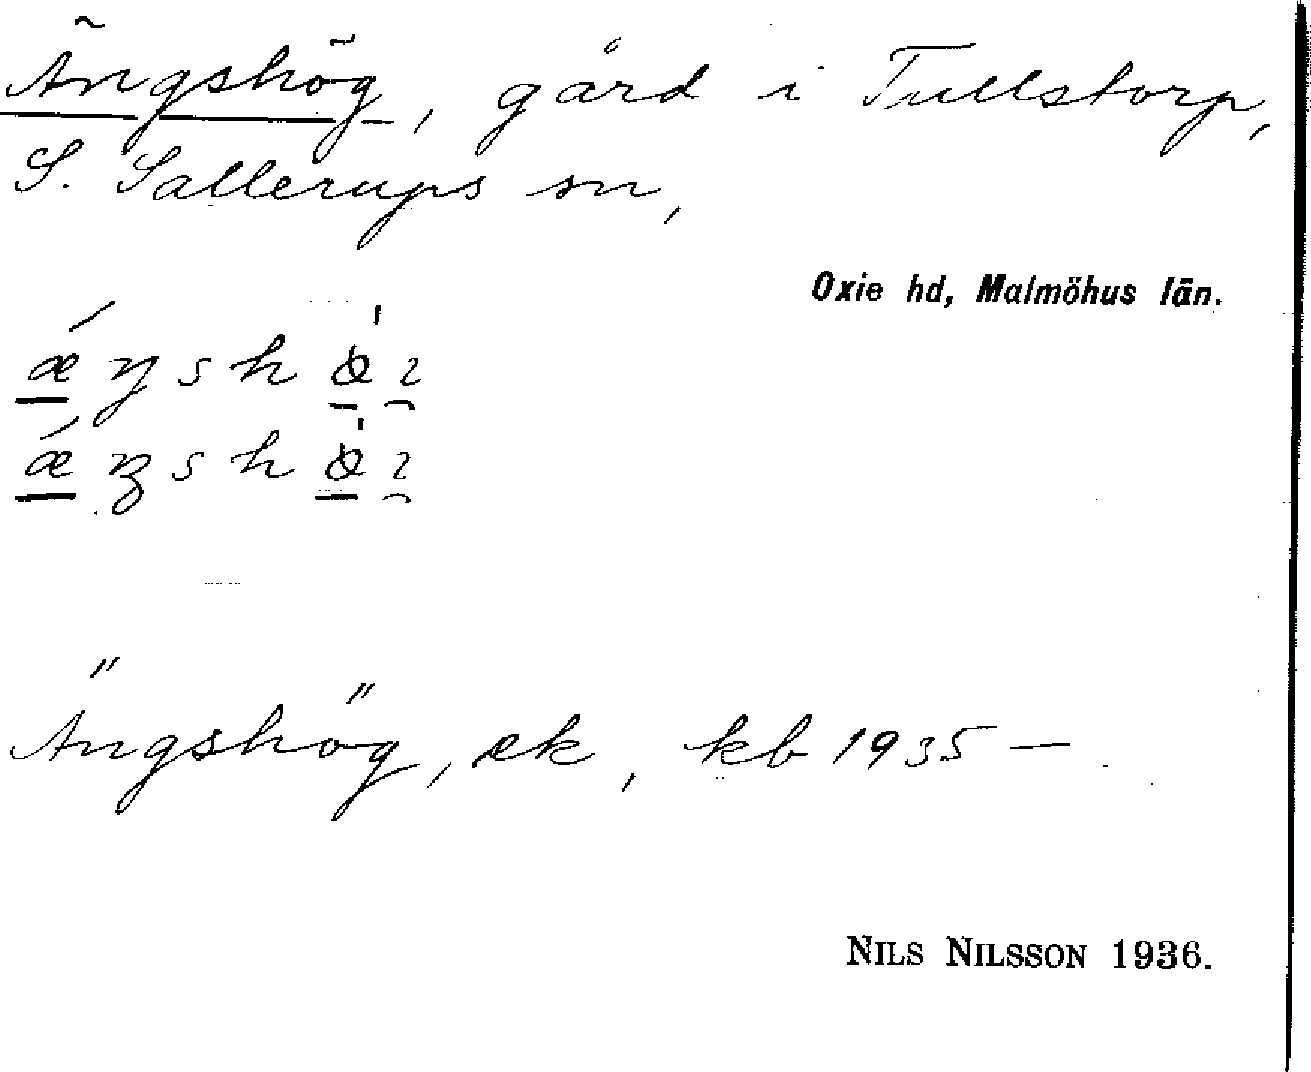 Ängshög, gård i Tullstorp,
S. Sallerups sn,
Oxie hd, Malmöhus län.
Ängshög, ek, kb 1935 —
NILS NILSSON 1936.